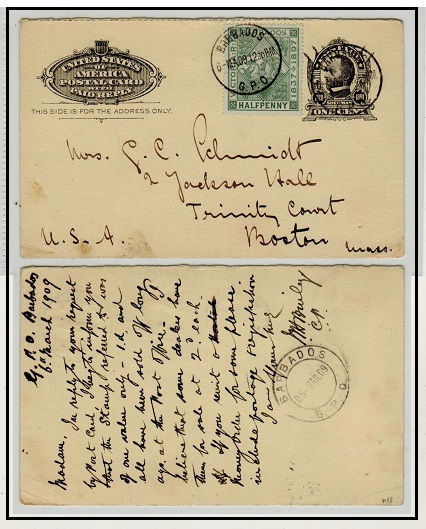 UNITED STATES
OF
AMERICA
POSTAL CARD
WITH
PAID REPLY.
THIS SIDE IS FOR THE ADDRESS ONLY.
BARBADOS
G.P.O.
1837-1897
HALFPENNY
ONE CENT
Mrs. G. C. Schmidt
2 Jackson Hall
Trinity Court
Boston
Mass.
U.S.A.
G. P. O. Barbados
6 March 1909
Madam, In reply to your request
by Post Card, I beg to inform you
that the Stamp referred to was
of one value only - 1d. and
all have been sold off long
ago at the Post Office. I
believe that some dealers have
them for sale at 2d. each.
If you remit a
money order for some please
include postage & registration
BARBADOS
MAR 09
G. P. O.